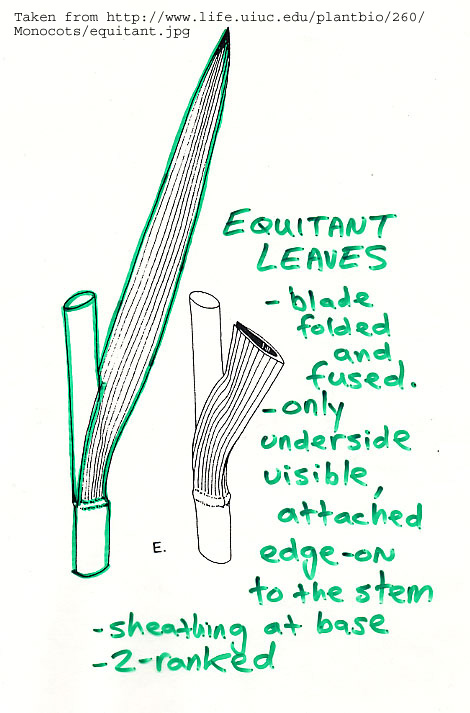 Taken from http://www.life.uiuc.edu/plantbio/260/
Monocots/equitant.jpg
EQUITANT
LEAVES
- blade
folded
and
fused.
- only
underside
visible,
attached
edge-on
to the stem
E.
- sheathing at base
- 2-ranked